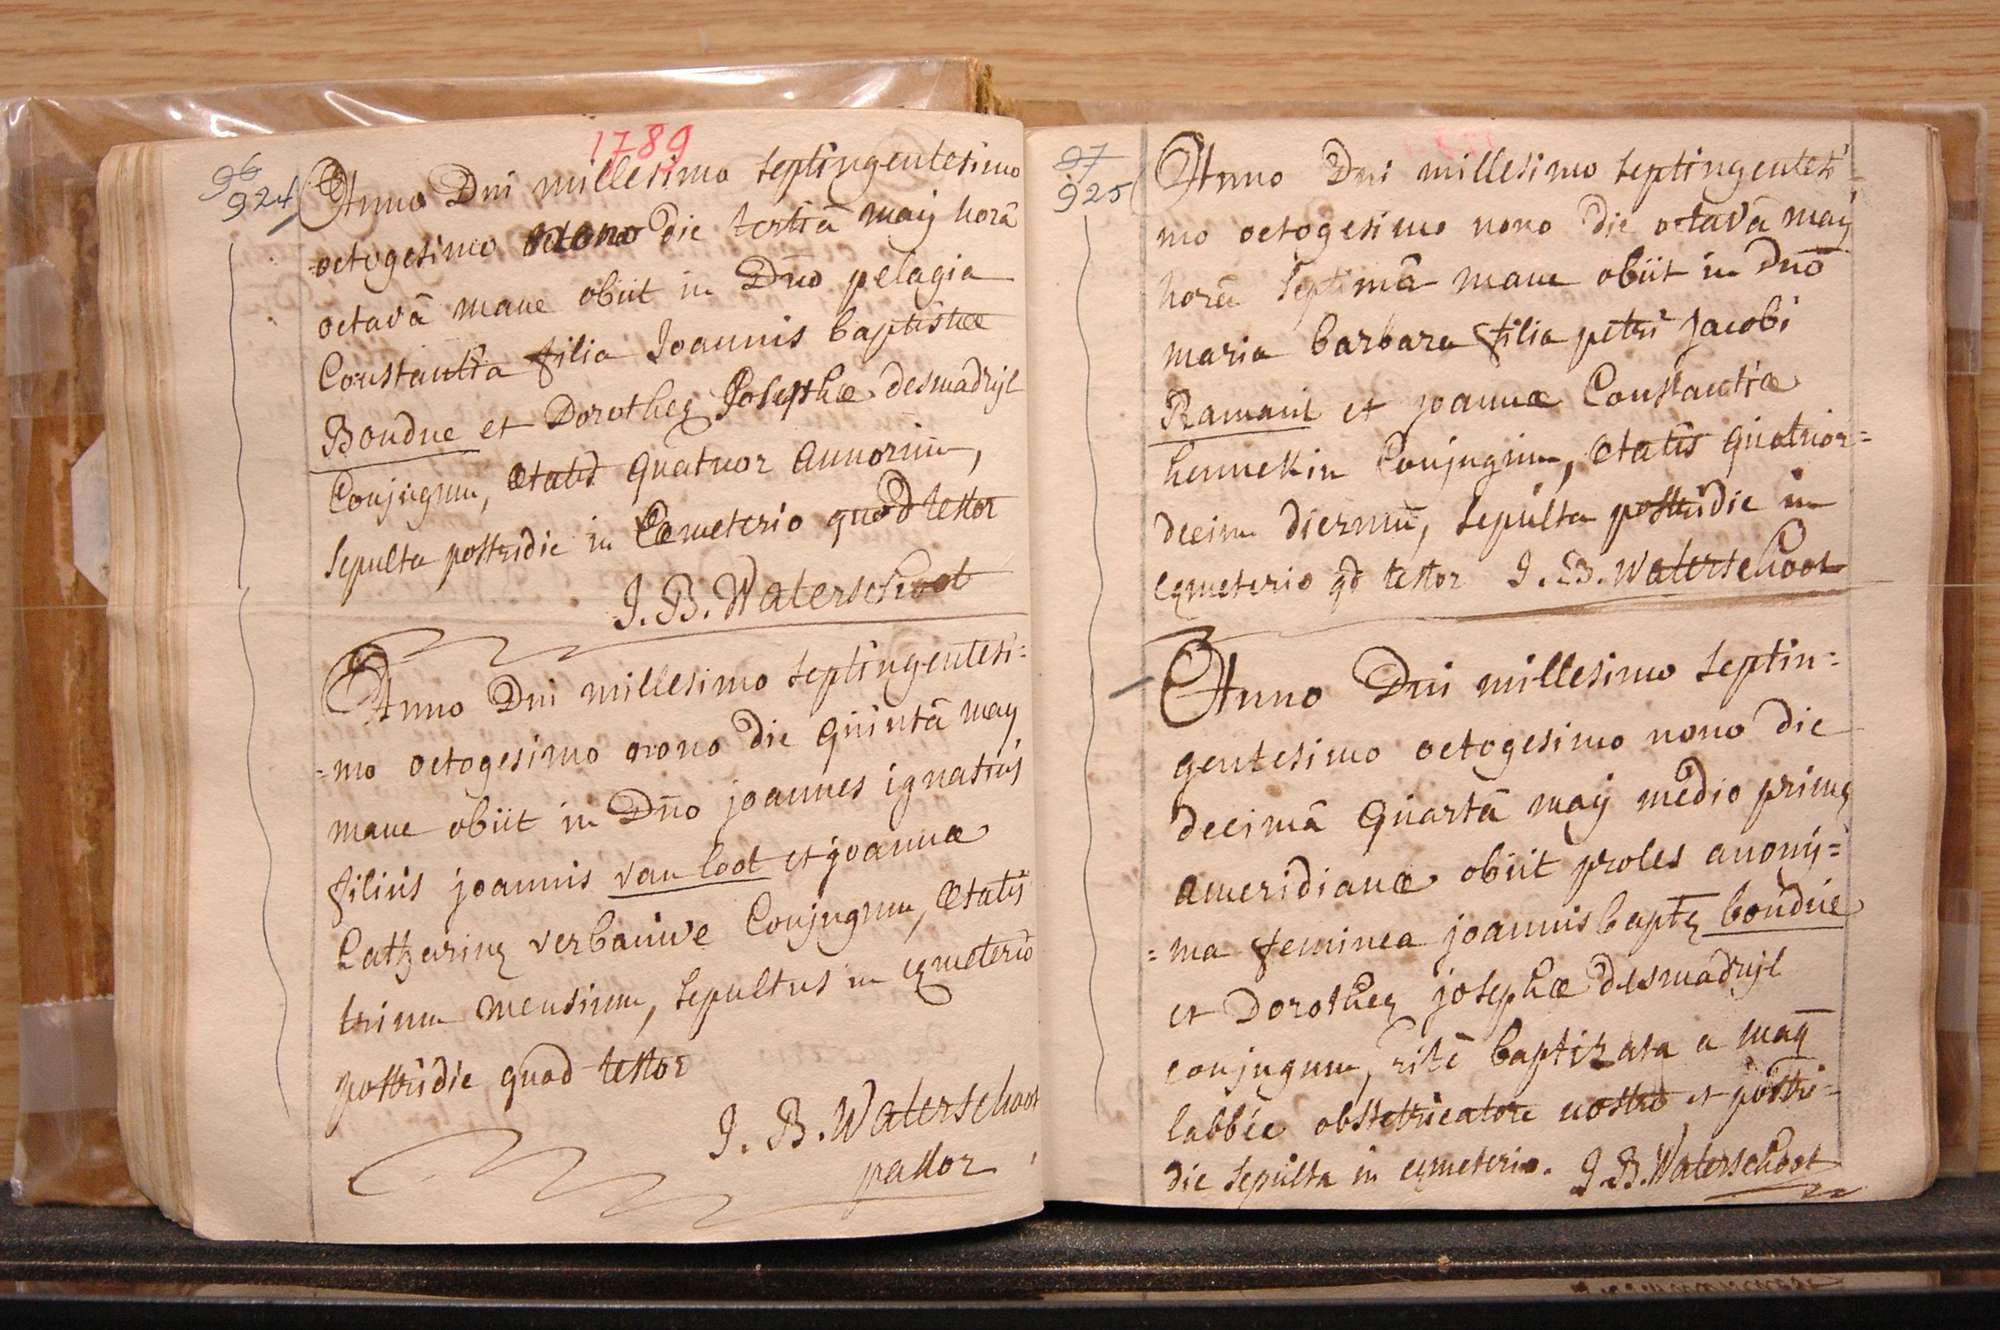 1789
96
924
Anno Dni millesimo septingentesimo
octogesimo nono die tertiâ maÿ horâ
octavâ mane obiit in Dno pelagia
Constantia filia Joannis baptistæ
Bondue et Dorotheæ Josephæ desmadrijl
Conjugum, ætatis quatuor annorum,
sepulta postridie in Cemeterio quod testor
J. B. Waterschoot
Anno Dni millesimo septingentesi=
=mo octogesimo nono die quintâ may
mane obiit in Dno joannes ignatius
filius joannis van loot et joannæ
Catharinæ verbauwe Conjugum, ætatis
trium mensium, sepultus in cæmeterio
postridie quod testor
J. B. Waterschoot
pastor
97
925
Anno Dni millesimo septingentesi
mo octogesimo nono die octavâ maÿ
horâ septimâ mane obiit in Dno
maria barbara filia petri jacobi
Ramaut et joannæ Constantiæ
hennekin Conjugum, ætatis quatuor=
decim dierum, sepulta postridie in
cæmeterio qd testor J. B. Waterschoot
Anno Dni millesimo septin=
gentesimo octogesimo nono die
decimâ quartâ maÿ medio primæ
ameridianæ obiit proles anony=
=ma feminea joannis baptæ bondue
et Dorotheæ josephæ desmadrijl
conjugum, ritè baptizata a mag
labbée obstetricatore nostro et postri=
die sepulta in cæmeterio. J. B. Waterschoot